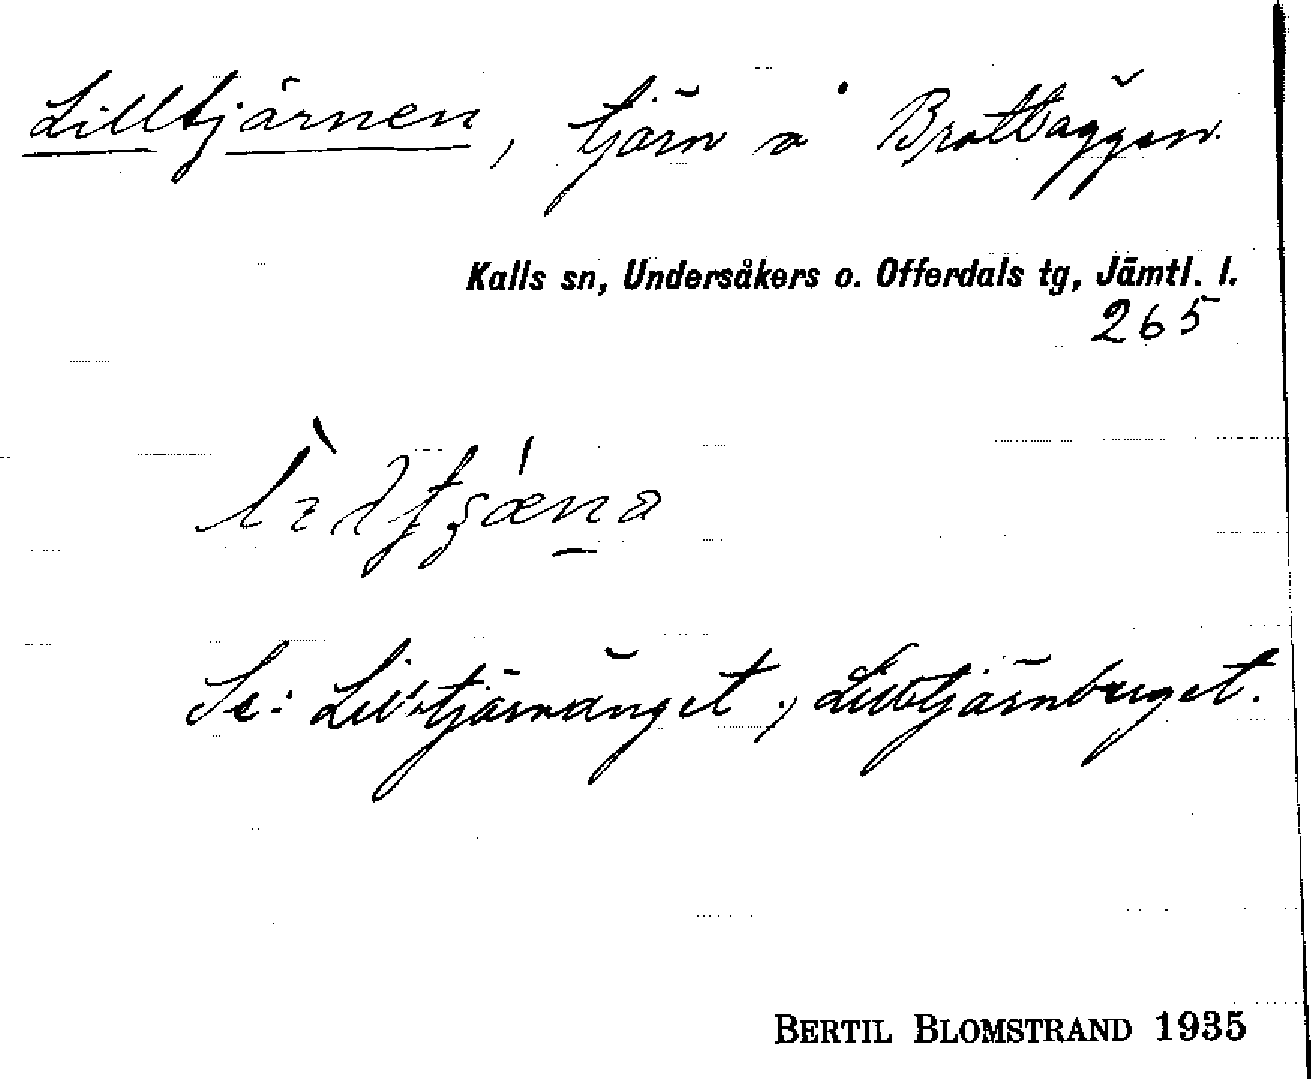 Lilltjärnen, tjärn å Brattäggen.
Kalls sn, Undersåkers o. Offerdals tg, Jämtl. l.
265
Se: Lilltjärnänget; Lilltjärnberget.
BERTIL BLOMSTRAND 1935